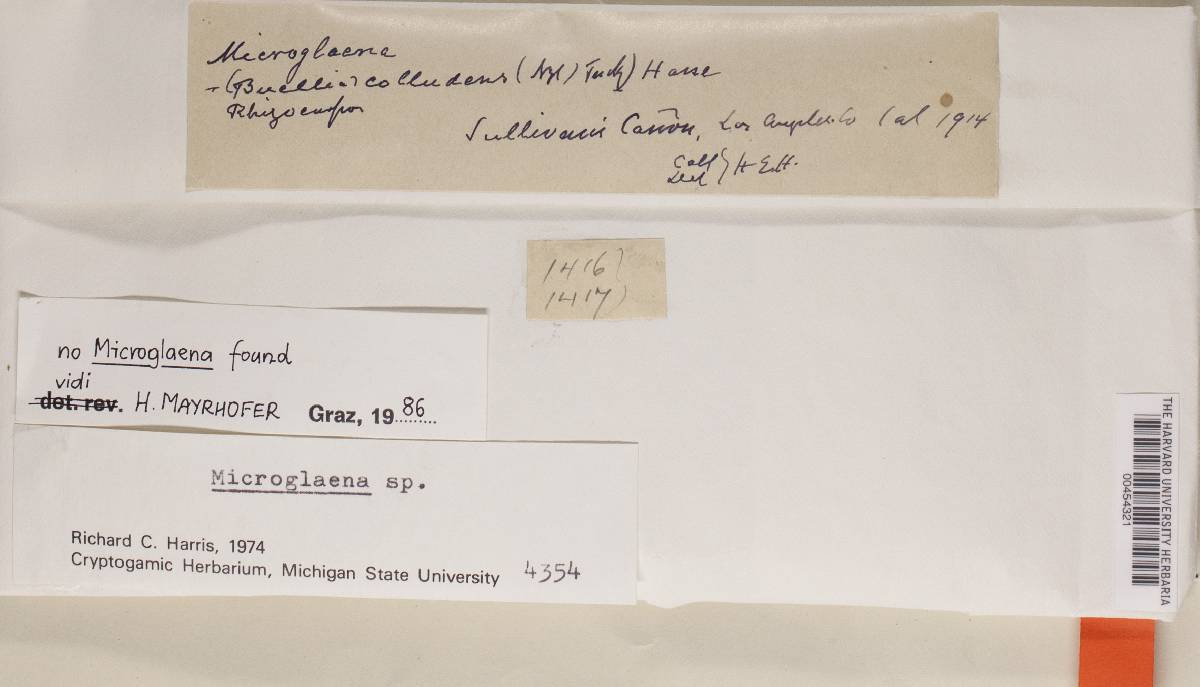 Microglaena
(Buellia) colludens (Nyl) Tuck) Hasse
Rhizocarpon
Sullivans Cañon, Los Angeles Co Cal 1914
Coll } H E.H.
1416)
1417)
no Microglaena found
vidi
det. rev. H. MAYRHOFER Graz, 1986
Microglaena sp.
Richard C. Harris, 1974
Cryptogamic Herbarium, Michigan State University 4354
THE HARVARD UNIVERSITY HERBARIA
00454321